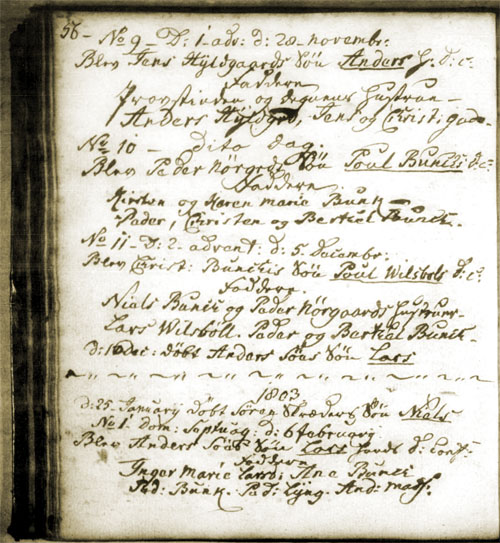 56 - No 9 - D: 1 adv: d: 28 novembr:
Blev Jens Hyldgaards Søn Anders h: d: c:
Faddere
Provstinden og degnens hustrue -
Anders Hyldgrd, Jens og Christ:
No 10 - dito dag.
Blev Peder Nørgrds Søn Poul Bunch d: c:
Faddere
Kirsten og Karen Marie Bunk -
Peder, Christen og Berthel Bunch.
No 11 - D: 2 advent d: 5 decembr:
Blev Christ: Bunchis Søn Poul Wilsbøls d: c:
Faddere
Niels Bunch og Peder Nørgaards hustruer
Lars Wilsböll. Peder og Berthel Bunch -
d: dec: døbt Anders Søn Lars
1803
d: 25 January døbt Søren Strøders Søn Niels
No 1 dom: Septuag: d: 6 februarj
Blev Anders Søn Lars d: conf:
Faddere
Inger Marie Larsd: Ane Bunch
Ped: Bunk. Ped: Lyng. And: Mads.